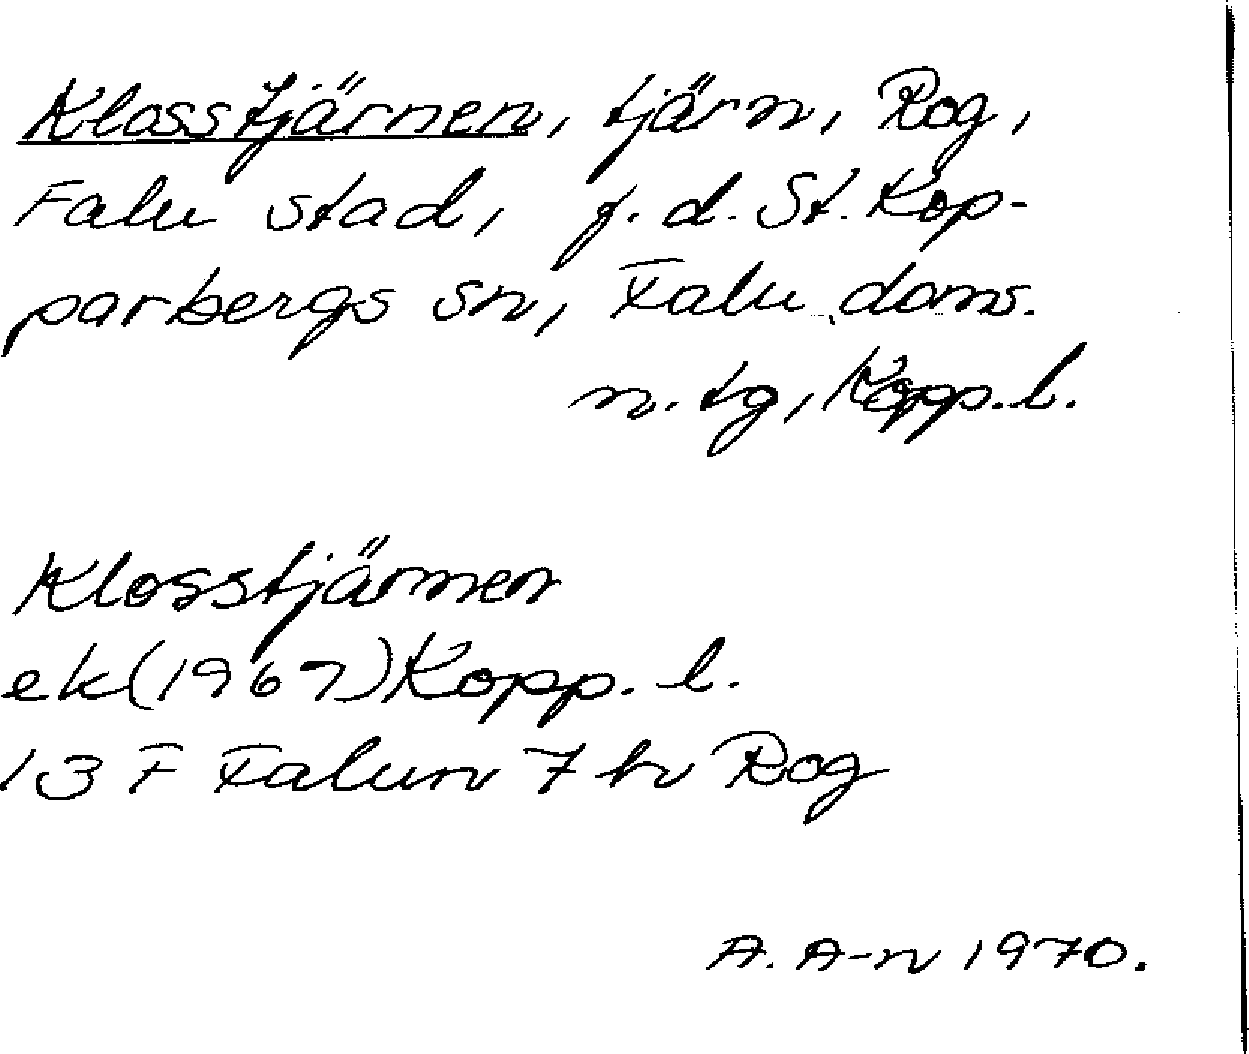 Klosstjärnen, tjärn, Rog,
Falu stad, f. d. St. Kop-
parbergs sn, Falu doms.
n. tg, Kopp. l.
Klosstjärnen
ek (1967) Kopp. l.
13 F Falun 7 h Rog
A. A-n 1970.